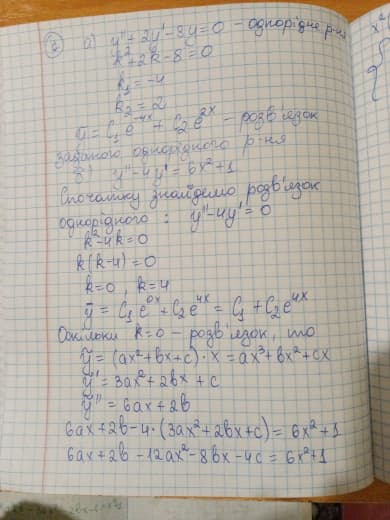 ③ а) y'' + 2y' - 8y = 0 - однорідне р-ня
k² + 2k - 8 = 0
k₁ = -4
k₂ = 2
ȳ = C₁e⁻⁴ˣ + C₂e²ˣ - розв'язок
заданого однорідного р-ня
б) y'' - 4y' = 6x² + 1
Спочатку знайдемо розв'язок
однорідного : y'' - 4y' = 0
k² - 4k = 0
k(k-4) = 0
k=0 , k=4
ȳ = C₁e⁰ˣ + C₂e⁴ˣ = C₁ + C₂e⁴ˣ
Оскільки k=0 - розв'язок, то
ỹ = (ax² + bx + c)·x = ax³ + bx² + cx
ỹ' = 3ax² + 2bx + c
ỹ'' = 6ax + 2b
6ax + 2b - 4·(3ax² + 2bx + c) = 6x² + 1
6ax + 2b - 12ax² - 8bx - 4c = 6x² + 1